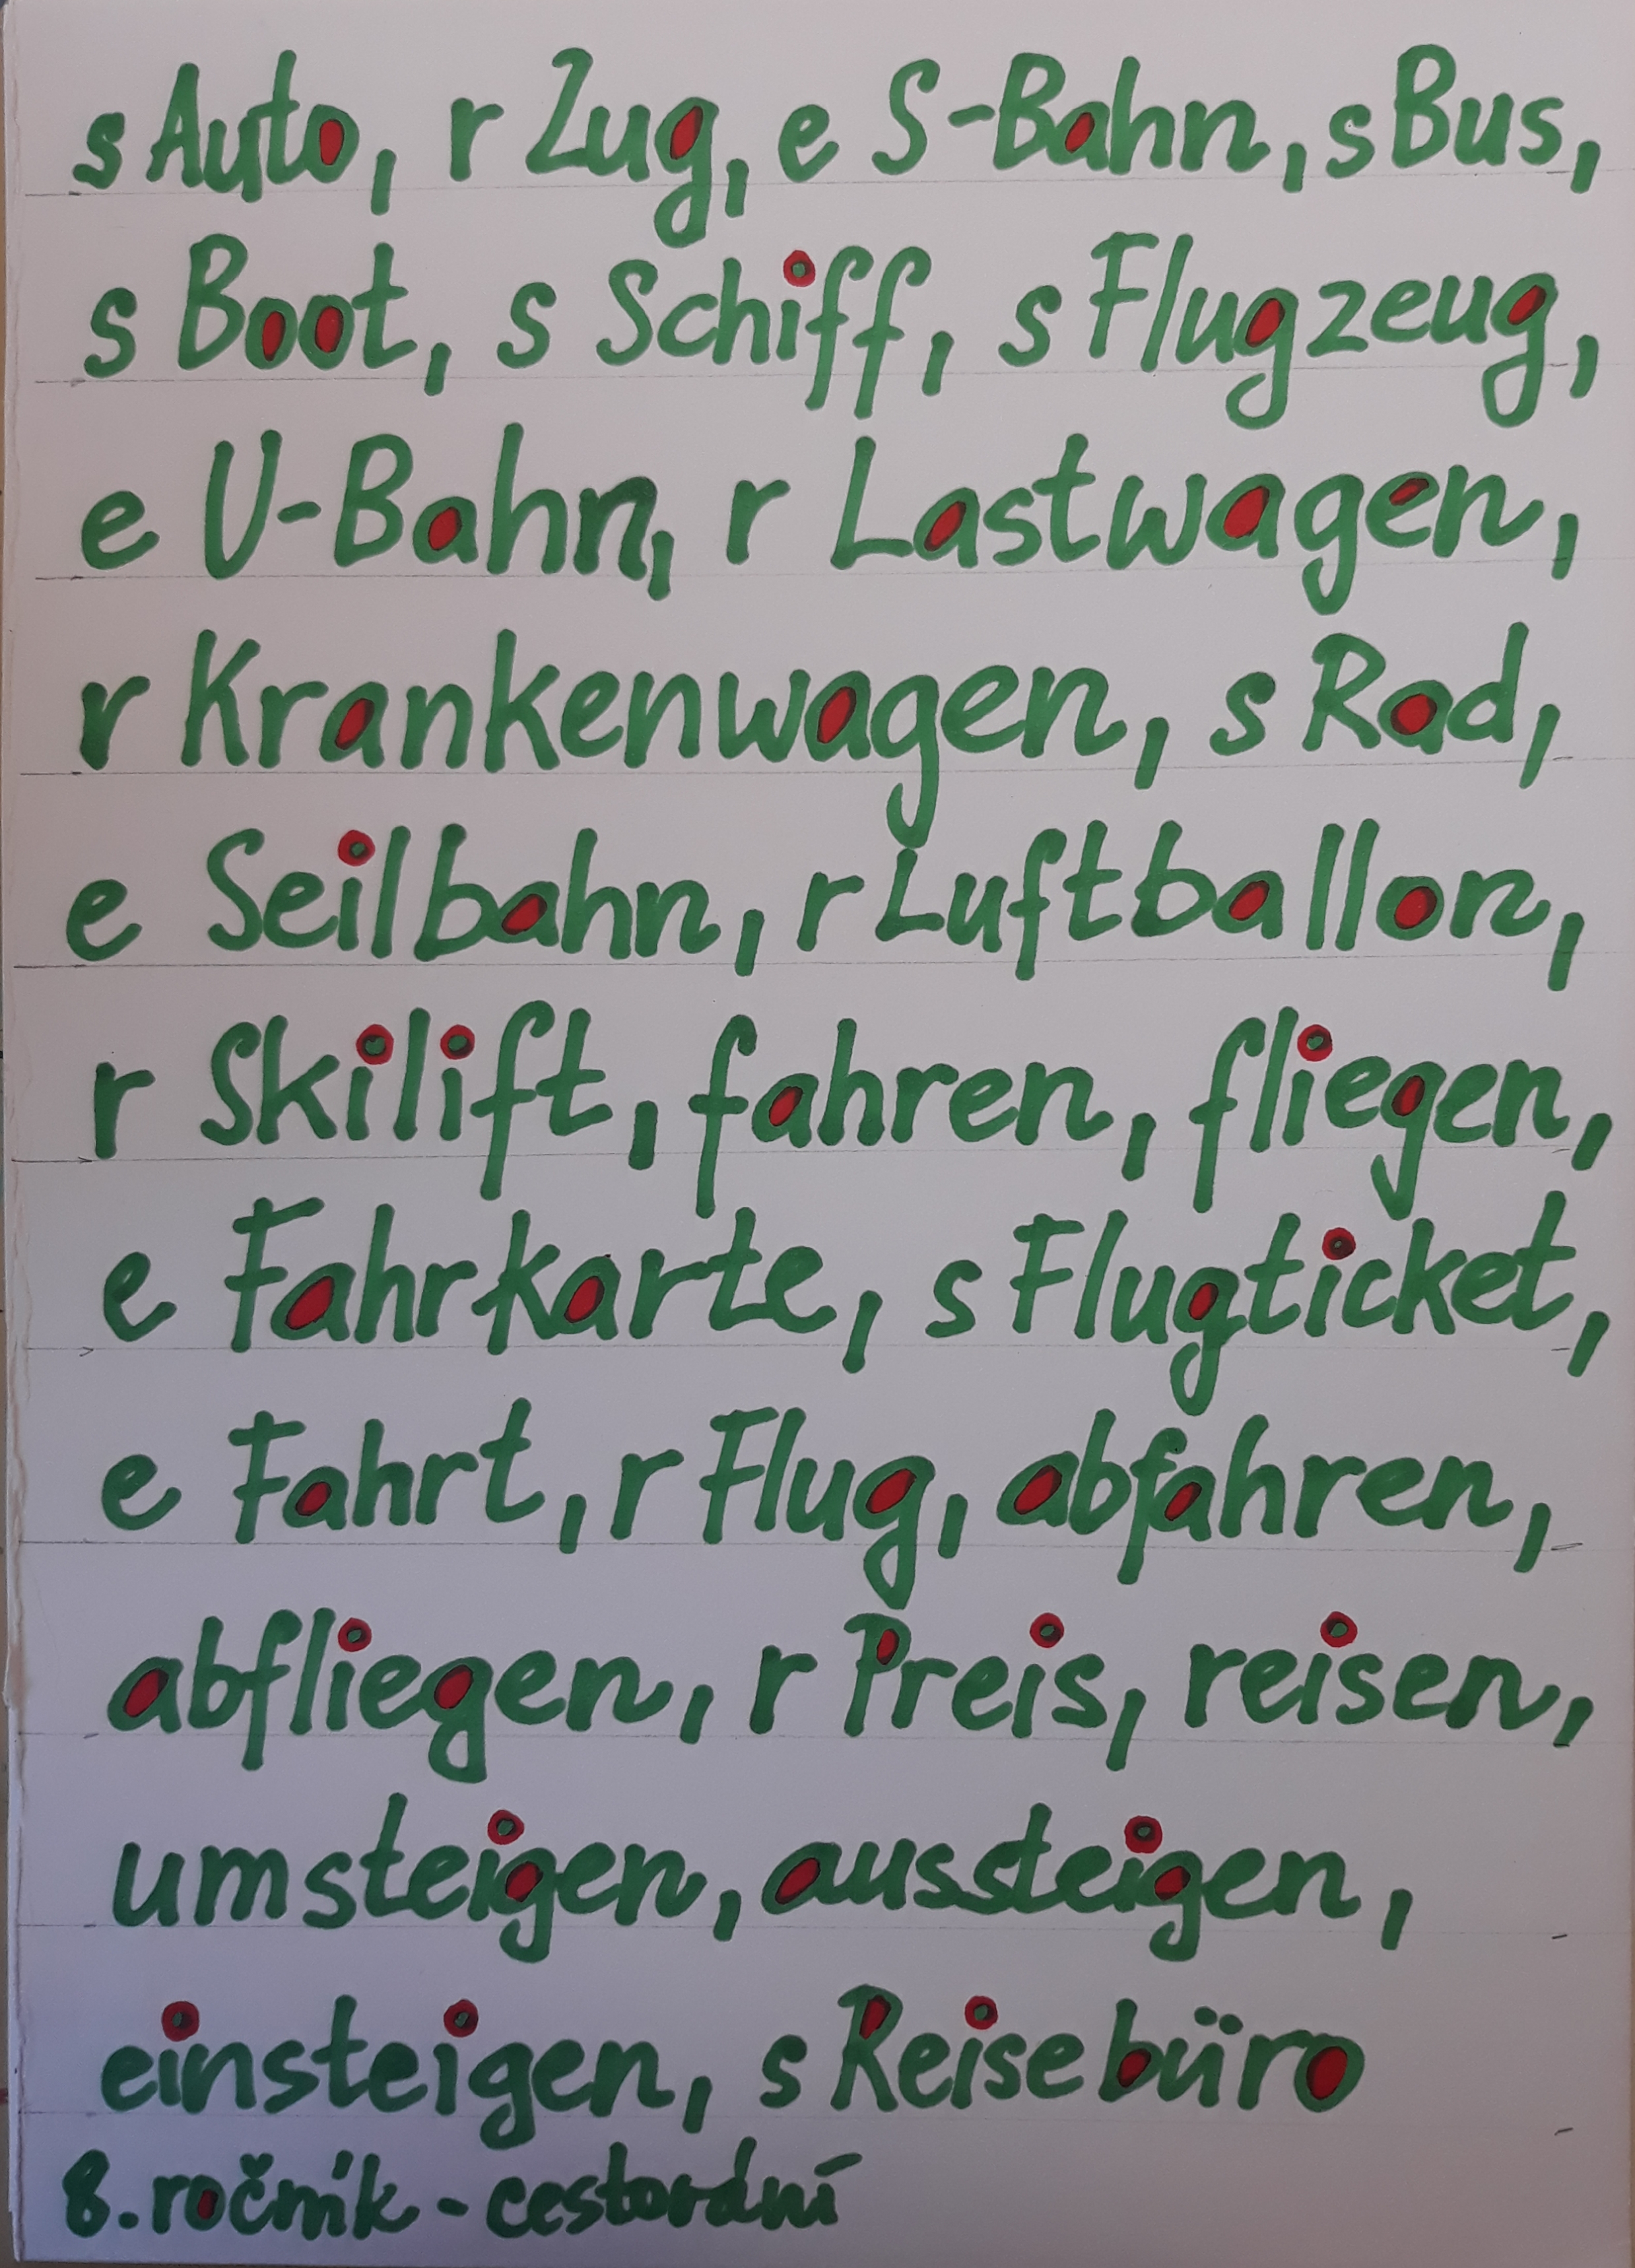 s Auto, r Zug, e S-Bahn, s Bus,
s Boot, s Schiff, s Flugzeug,
e U-Bahn, r Lastwagen,
r Krankenwagen, s Rad,
e Seilbahn, r Luftballon,
r Skilift, fahren, fliegen,
e Fahrkarte, s Flugticket,
e Fahrt, r Flug, abfahren,
abfliegen, r Preis, reisen,
umsteigen, aussteigen,
einsteigen, s Reisebüro
8. ročník - cestování